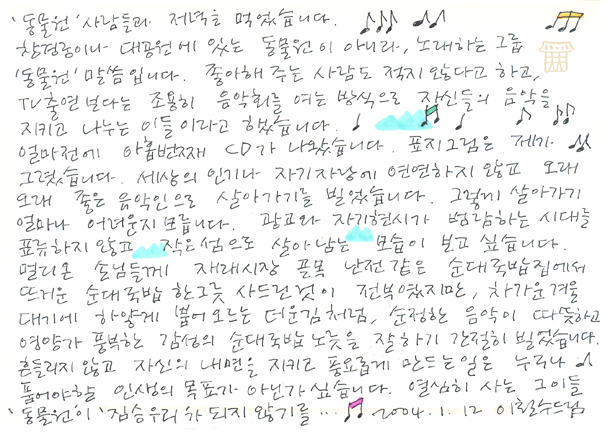 '동물원' 사람들과 저녁을 먹었습니다.
창경궁이나 대공원에 있는 동물원이 아니라, 노래하는 그룹
'동물원' 말씀입니다. 좋아해 주는 사람도 적지 않다고 하고,
TV출연보다는 조용히 음악회를 여는 방식으로 자신들의 음악을
지키고 나누는 이들이라고 했습니다.
얼마전에 아홉번째 CD가 나왔습니다. 표지그림은 제가
그렸습니다. 세상의 인기나 자기자랑에 연연하지 않고 오래
오래 좋은 음악인으로 살아가기를 빌었습니다. 그렇게 살아가기
얼마나 어려운지 모릅니다. 광고와 자기현시가 범람하는 시대를
표류하지 않고 작은 섬으로 살아남는 모습이 보고 싶습니다.
멀리온 손님들께 재래시장 골목 난전같은 순대국밥집에서
뜨거운 순대국밥 한그릇 사드린것이 전부였지만, 차가운 겨울
대기에 하얗게 뿜어오르는 더운김처럼, 순정한 음악이 따뜻하고
영양가 풍부한 감성의 순대국밥노릇을 잘하기 간절히 빌었습니다.
흔들리지 않고 자신의 내면을 지키고 풍요롭게 만드는 일은 누구나
품어야할 인생의 목표가 아닌가 싶습니다. 열심히 사는 그이들
'동물원'이 '짐승우리'가 되지 않기를 … 2004.1.12 이철수드림